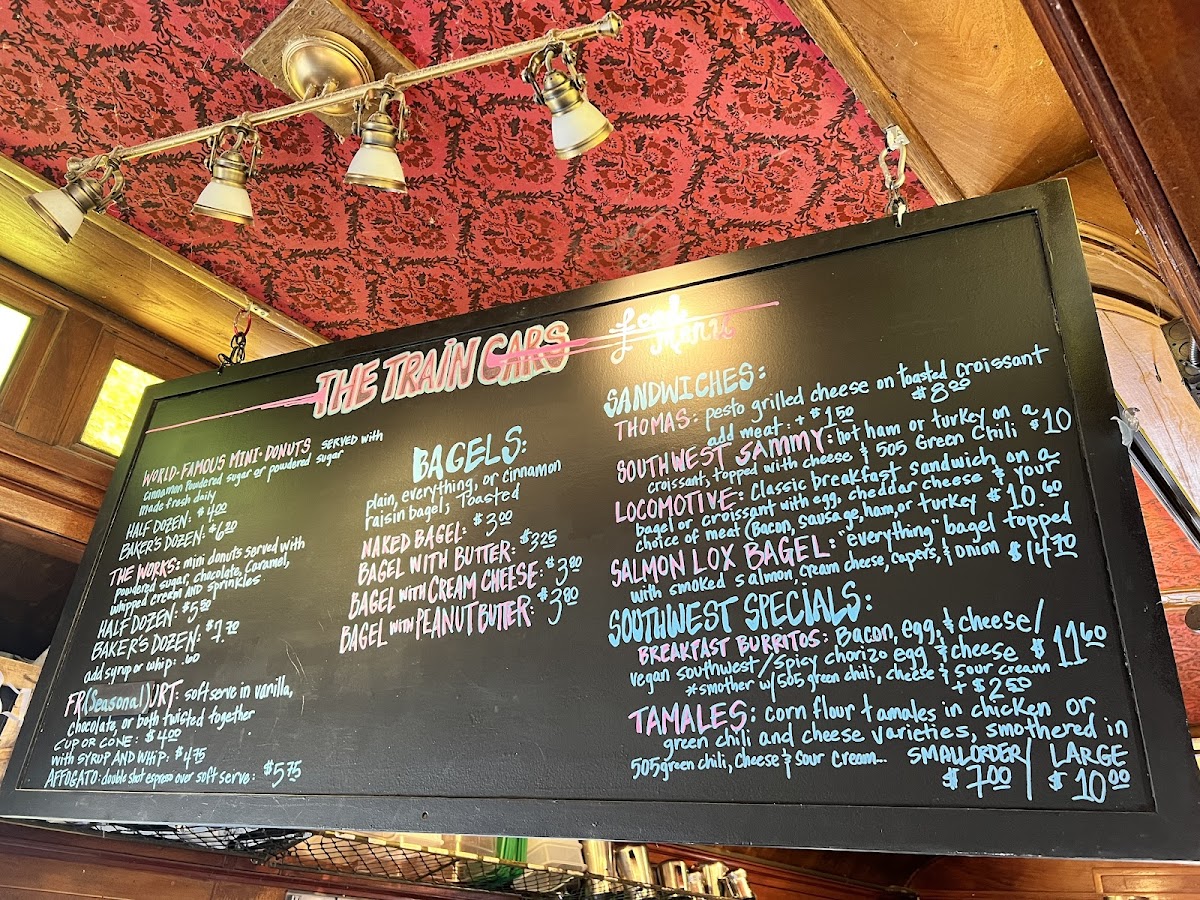 THE TRAIN CARS
Food Menu
WORLD-FAMOUS MINI-DONUTS SERVED with
cinnamon powdered sugar or powdered sugar
made fresh daily
HALF DOZEN: $4.00
BAKER'S DOZEN: $6.20
THE WORKS: mini donuts served with
powdered sugar, chocolate, caramel,
whipped cream AND sprinkles
HALF DOZEN: $5.50
BAKER'S DOZEN: $7.70
add syrup or whip: .60
FR(Seasonal)URT: soft serve in vanilla,
chocolate, or both twisted together
CUP OR CONE: $4.00
with SYRUP AND WHIP: $4.75
AFFOGATO: double shot espresso over soft serve: $5.75
BAGELS:
plain, everything, or cinnamon
raisin bagel; Toasted
NAKED BAGEL: $3.00
BAGEL WITH BUTTER: $3.25
BAGEL WITH CREAM CHEESE: $3.80
BAGEL WITH PEANUT BUTTER: $3.80
SANDWICHES:
THOMAS: pesto grilled cheese on toasted croissant
add meat: + $1.50 $8.00
SOUTHWEST SAMMY: hot ham or turkey on a
croissant, topped with cheese & 505 Green Chili $10
LOCOMOTIVE: Classic breakfast sandwich on a
bagel or croissant with egg, cheddar cheese & your
choice of meat (Bacon, sausage, ham, or turkey $10.60
SALMON LOX BAGEL: "everything" bagel topped
with smoked salmon, cream cheese, capers, & onion $14.70
SOUTHWEST SPECIALS:
BREAKFAST BURRITOS: Bacon, egg, & cheese/
vegan southwest/spicy chorizo egg & cheese $11.60
*smother w/505 green chili, cheese & sour cream
+ $2.50
TAMALES: corn flour tamales in chicken or
green chili and cheese varieties, smothered in
505 green chili, cheese & sour cream... SMALL ORDER/ LARGE
$7.00/ $10.00